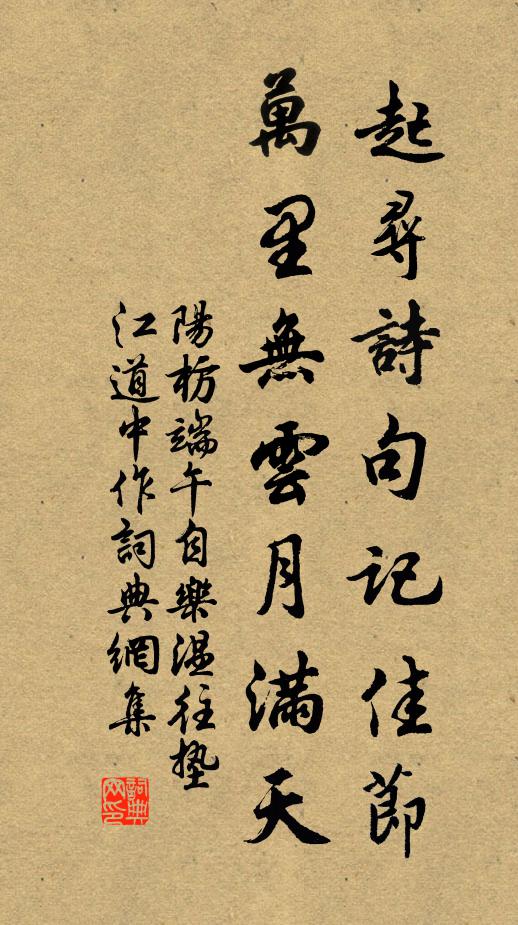 起尋詩句記佳節
萬里無雲月滿天
陽枋端午自樂溫往墊
江道中作詞典網集
詞典
网印